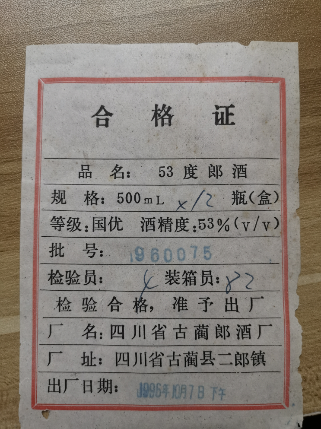 合格证
品名：53度郎酒
规格：500mL x12 瓶(盒)
等级：国优 酒精度：53%(v/v)
批号：960075
检验员：4 装箱员：82
检验合格，准予出厂
厂名：四川省古蔺郎酒厂
厂址：四川省古蔺县二郎镇
出厂日期：1996年10月7日 下午